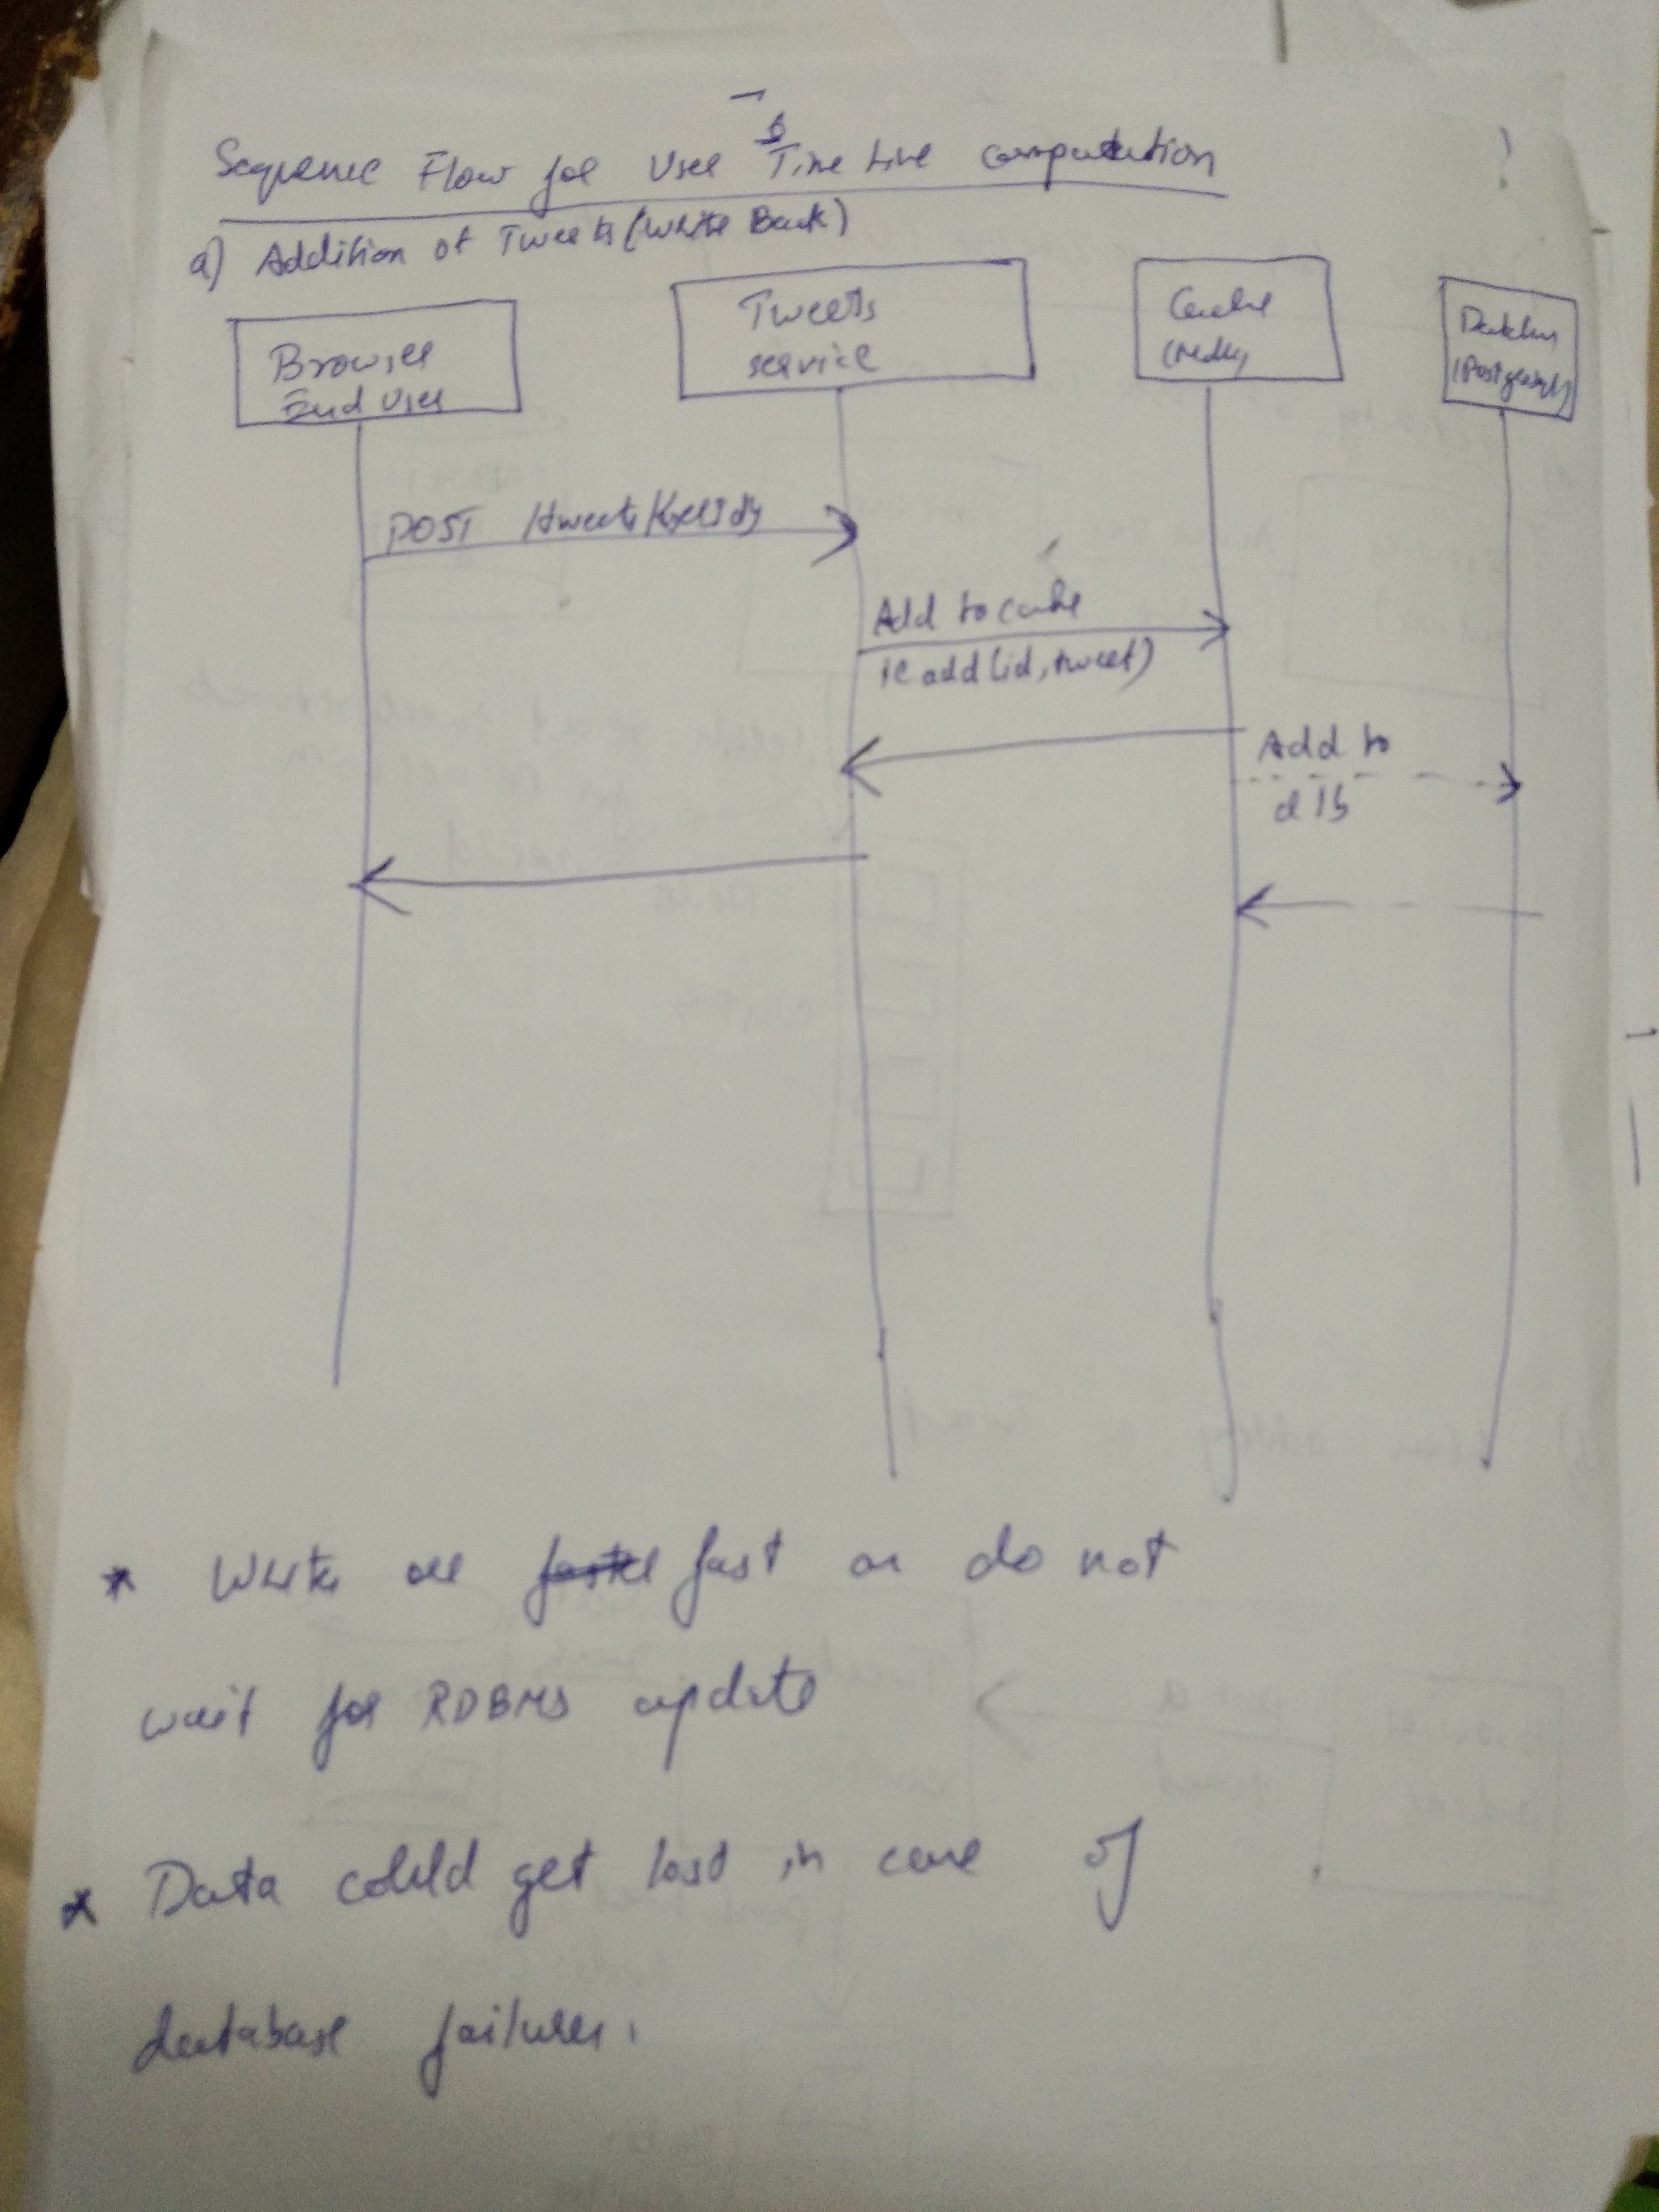 6
Sequence Flow for User Time Line computation
a) Addition of Tweets (Write Back)
Browser
End User
Tweets
service
Cache
(redis)
(Postgresql)
POST /tweets/
Add to cache
ie add (id, tweet)
Add to
db
* Writes are faster fast as do not
wait for RDBMS update
* Data could get lost in case of
database failures.